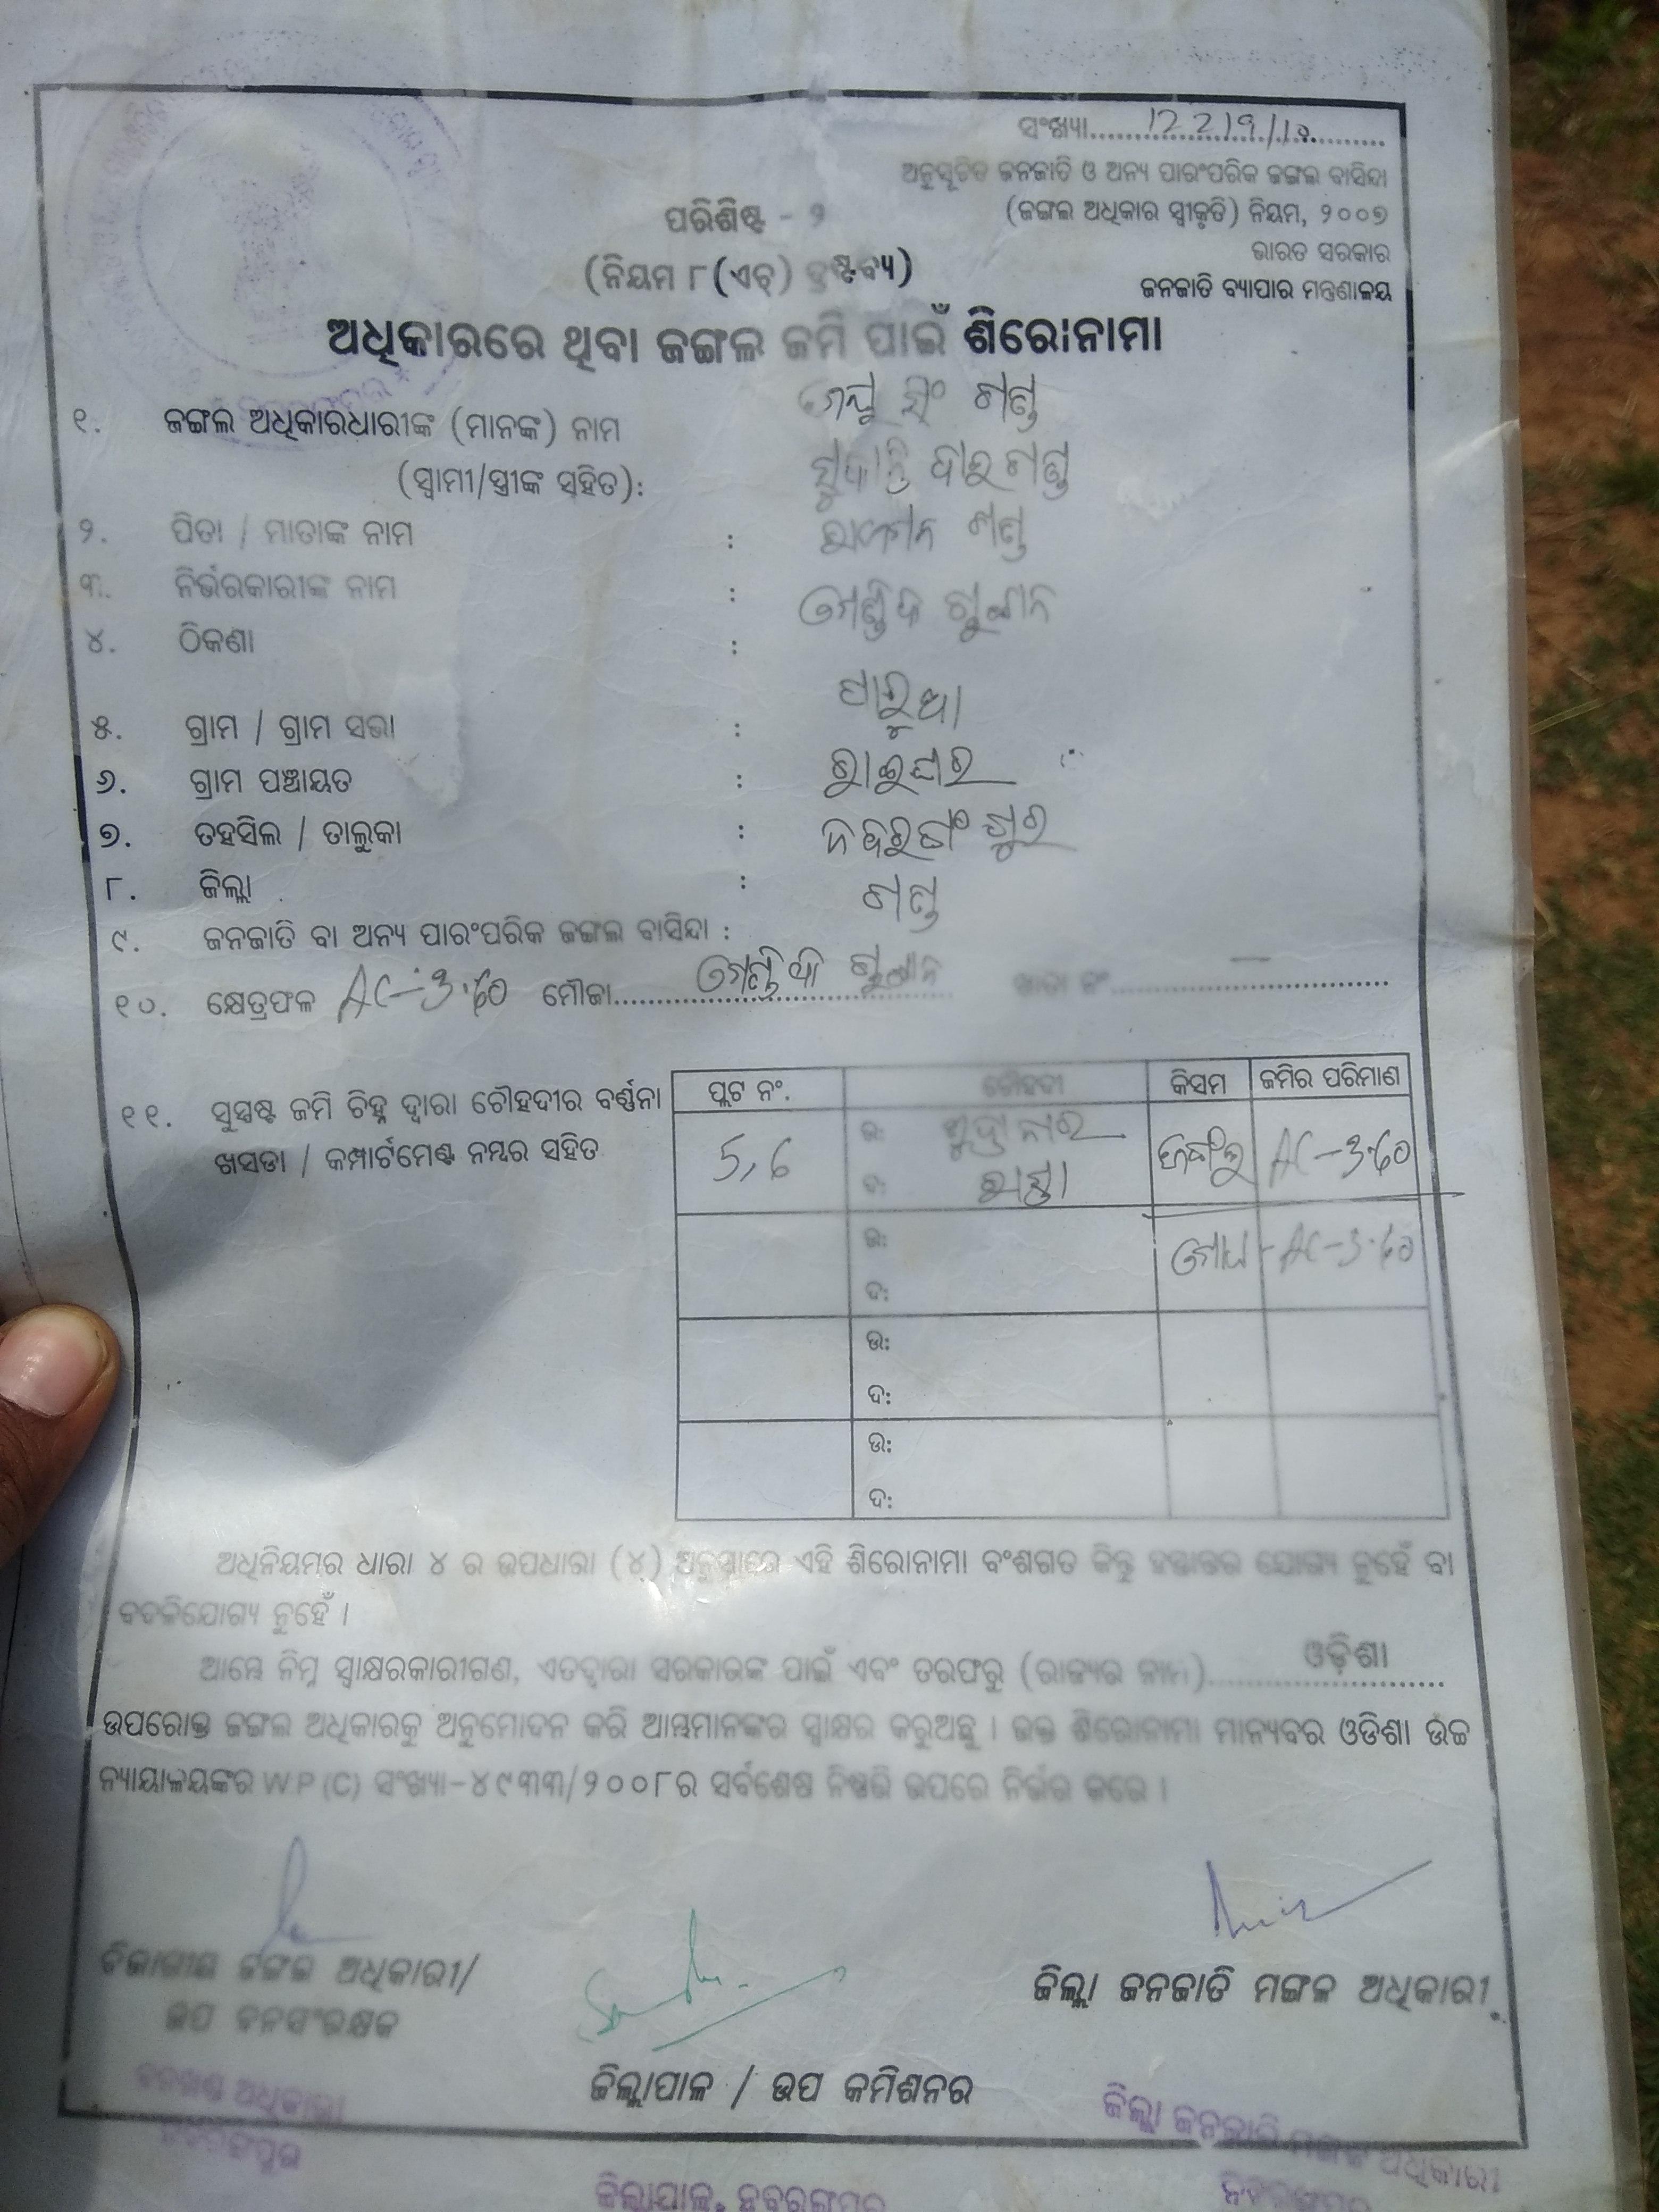 ସଂଖ୍ୟା............12219/10............
ଅନୁସୂଚିତ ଜନଜାତି ଓ ଅନ୍ୟ ପାରଂପରିକ ଜଙ୍ଗଲ ବାସିନ୍ଦା
(ଜଙ୍ଗଲ ଅଧିକାର ସ୍ୱୀକୃତି) ନିୟମ, ୨୦୦୭
ଭାରତ ସରକାର
ଜନଜାତି ବ୍ୟାପାର ମନ୍ତ୍ରଣାଳୟ
ପରିଶିଷ୍ଟ - ୨
(ନିୟମ ୮(ଏଚ୍) ଦ୍ରଷ୍ଟବ୍ୟ)
ଅଧିକାରରେ ଥିବା ଜଙ୍ଗଲ ଜମି ପାଇଁ ଶିରୋନାମା
୧. ଜଙ୍ଗଲ ଅଧିକାରଧାରୀଙ୍କ (ମାନଙ୍କ) ନାମ ସିଂ ଗଣ୍ଡ
(ସ୍ୱାମୀ/ସ୍ତ୍ରୀଙ୍କ ସହିତ): ବାଇ ଗଣ୍ଡ
୨. ପିତା / ମାତାଙ୍କ ନାମ : ଗଣ୍ଡ
୩. ନିର୍ଭରକାରୀଙ୍କ ନାମ :
୪. ଠିକଣା :
୫. ଗ୍ରାମ / ଗ୍ରାମ ସଭା : ପାରୁଆ
୬. ଗ୍ରାମ ପଞ୍ଚାୟତ : ରାଇଘର
୭. ତହସିଲ / ତାଲୁକା : ନବରଙ୍ଗପୁର
୮. ଜିଲ୍ଲା : ଗଣ୍ଡ
୯. ଜନଜାତି ବା ଅନ୍ୟ ପାରଂପରିକ ଜଙ୍ଗଲ ବାସିନ୍ଦା :
୧୦. କ୍ଷେତ୍ରଫଳ AC-3.60 ମୌଜା............ ଖାତା ନଂ............
୧୧. ସୁସ୍ପଷ୍ଟ ଜମି ଚିହ୍ନ ଦ୍ୱାରା ଚୌହଦୀର ବର୍ଣ୍ଣନା
ଖସଡା / କମ୍ପାର୍ଟମେଣ୍ଟ ନମ୍ବର ସହିତ
ପ୍ଲଟ ନଂ. ଚୌହଦୀ କିସମ ଜମିର ପରିମାଣ
5,6 ଉ: ଜଙ୍ଗଲ AC-3.60
ଦ: ରାସ୍ତା
ଉ: ମୋଟ - AC-3.60
ଦ:
ଉ:
ଦ:
ଉ:
ଦ:
ଅଧିନିୟମର ଧାରା ୪ ର ଉପଧାରା (୪) ଅନୁସାରେ ଏହି ଶିରୋନାମା ବଂଶଗତ କିନ୍ତୁ ହସ୍ତାନ୍ତର ଯୋଗ୍ୟ ନୁହେଁ ବା
ବଦଳିଯୋଗ୍ୟ ନୁହେଁ ।
ଆମ୍ଭେ ନିମ୍ନ ସ୍ୱାକ୍ଷରକାରୀଗଣ, ଏତଦ୍ୱାରା ସରକାରଙ୍କ ପାଇଁ ଏବଂ ତରଫରୁ (ରାଜ୍ୟର ନାମ)......ଓଡ଼ିଶା......
ଉପରୋକ୍ତ ଜଙ୍ଗଲ ଅଧିକାରକୁ ଅନୁମୋଦନ କରି ଆମ୍ଭମାନଙ୍କର ସ୍ୱାକ୍ଷର କରୁଅଛୁ । ଉକ୍ତ ଶିରୋନାମା ମାନ୍ୟବର ଓଡିଶା ଉଚ୍ଚ
ନ୍ୟାୟାଳୟଙ୍କର W.P (C) ସଂଖ୍ୟା-୪୯୩୩/୨୦୦୮ର ସର୍ବଶେଷ ନିଷ୍ପତ୍ତି ଉପରେ ନିର୍ଭର କରେ ।
ବିଭାଗୀୟ ଜଙ୍ଗଲ ଅଧିକାରୀ/
ଉପ ବନସଂରକ୍ଷକ
ଜିଲ୍ଲା ଜନଜାତି ମଙ୍ଗଳ ଅଧିକାରୀ
ଜିଲ୍ଲାପାଳ / ଉପ କମିଶନର
ବନଖଣ୍ଡ ଅଧିକାରୀ
ନବରଙ୍ଗପୁର
ଜିଲ୍ଲା ଜନଜାତି ମଙ୍ଗଳ ଅଧିକାରୀ
ନବରଙ୍ଗପୁର
ଜିଲ୍ଲାପାଳ, ନବରଙ୍ଗପୁର